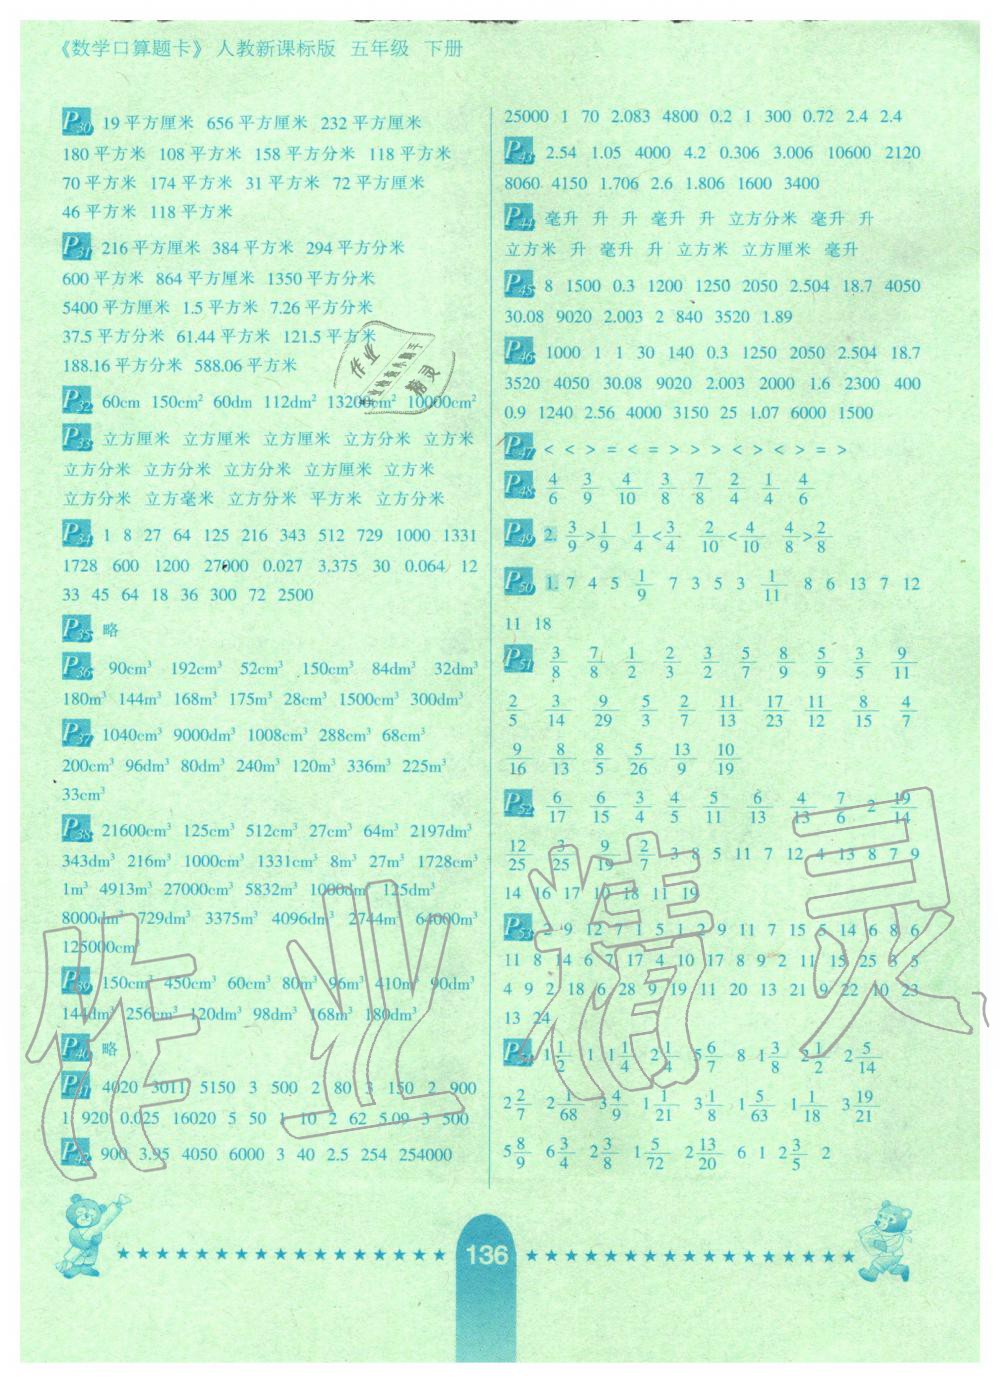 《数学口算题卡》 人教新课标版 五年级 下册
P30 19平方厘米 656平方厘米 232平方厘米
180平方米 108平方米 158平方分米 118平方米
70平方米 174平方米 31平方米 72平方厘米
46平方米 118平方米
P31 216平方厘米 384平方米 294平方分米
600平方米 864平方厘米 1350平方分米
5400平方厘米 1.5平方米 7.26平方分米
37.5平方分米 61.44平方米 121.5平方米
188.16平方分米 588.06平方米
P32 60cm 150cm² 60dm 112dm² 13200cm² 10000cm²
P33 立方厘米 立方厘米 立方厘米 立方分米 立方米
立方分米 立方分米 立方分米 立方厘米 立方米
立方分米 立方毫米 立方分米 平方米 立方分米
P34 1 8 27 64 125 216 343 512 729 1000 1331
1728 600 1200 27000 0.027 3.375 30 0.064 12
33 45 64 18 36 300 72 2500
P35 略
P36 90cm³ 192cm³ 52cm³ 150cm³ 84dm³ 32dm³
180m³ 144m³ 168m³ 175m³ 28cm³ 1500cm³ 300dm³
P37 1040cm³ 9000dm³ 1008cm³ 288cm³ 68cm³
200cm³ 96dm³ 80dm³ 240m³ 120m³ 336m³ 225m³
33cm³
P38 21600cm³ 125cm³ 512cm³ 27cm³ 64m³ 2197dm³
343dm³ 216m³ 1000cm³ 1331cm³ 8m³ 27m³ 1728cm³
1m³ 4913m³ 27000cm³ 5832m³ 1000dm³ 125dm³
8000dm³ 729dm³ 3375m³ 4096dm³ 2744m³ 64000m³
125000cm³
P39 150cm³ 450cm³ 60cm³ 80m³ 96m³ 410m³ 90dm³
144dm³ 256cm³ 120dm³ 98dm³ 168m³ 180dm³
P40 略
P41 4020 3011 5150 3 500 2 80 3 150 2 900
1 920 0.025 16020 5 50 1 10 2 62 5.09 3 500
P42 900 3.95 4050 6000 3 40 2.5 254 254000
25000 1 70 2.083 4800 0.2 1 300 0.72 2.4 2.4
P43 2.54 1.05 4000 4.2 0.306 3.006 10600 2120
8060 4150 1.706 2.6 1.806 1600 3400
P44 毫升 升 升 毫升 升 立方分米 毫升 升
立方米 升 毫升 升 立方米 立方厘米 毫升
P45 8 1500 0.3 1200 1250 2050 2.504 18.7 4050
30.08 9020 2.003 2 840 3520 1.89
P46 1000 1 1 30 140 0.3 1250 2050 2.504 18.7
3520 4050 30.08 9020 2.003 2000 1.6 2300 400
0.9 1240 2.56 4000 3150 25 1.07 6000 1500
P47 < < > = < = > > > < > < > = >
P48 4/6 3/9 4/10 3/8 7/8 2/4 1/4 4/6
P49 2. 3/9>1/9 1/4<3/4 2/10<4/10 4/8>2/8
P50 1. 7 4 5 1/9 7 3 5 3 1/11 8 6 13 7 12
11 18
P51 3/8 7/8 1/2 2/3 3/2 5/7 8/9 5/9 3/5 9/11
2/5 3/14 9/29 5/3 2/7 11/13 17/23 11/12 8/15 4/7
9/16 8/13 8/5 5/26 13/9 10/19
P52 6/17 6/15 3/4 4/5 5/11 6/13 4/13 7/6 2 19/14
12/25 3/25 9/19 2/7 3 8 5 11 7 12 4 13 8 7 9
14 16 17 10 18 11 19
P53 2 9 12 7 1 5 1 2 9 11 7 15 5 14 6 8 6
11 8 14 6 7 17 4 10 17 8 9 2 11 15 25 3 5
4 9 2 18 6 28 9 19 11 20 13 21 9 22 10 23
13 24
P54 1 1/2 1 1 1/4 2 1/4 5 6/7 8 1 3/8 2 1/2 2 5/14
2 2/7 2 1/68 3 4/9 1 1/21 3 1/8 1 5/63 1 1/18 3 19/21
5 8/9 6 3/4 2 3/8 1 5/72 2 13/20 6 1 2 3/5 2
136
作业精灵